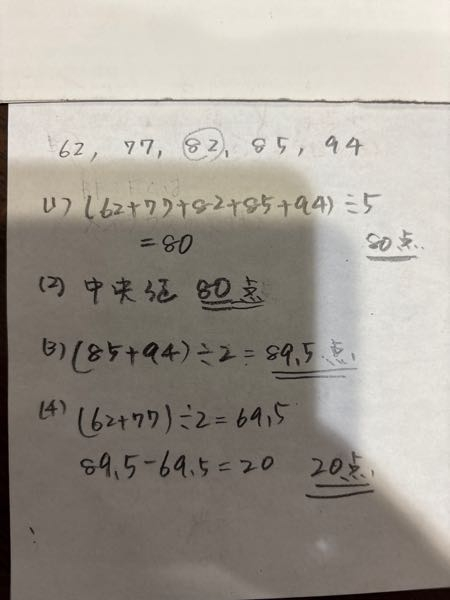 62, 77, 82, 85, 94
(1) (62+77+82+85+94)÷5
=80 80点
(2) 中央値 80点
(3) (85+94)÷2=89,5点
(4) (62+77)÷2=69,5
89,5-69,5=20 20点